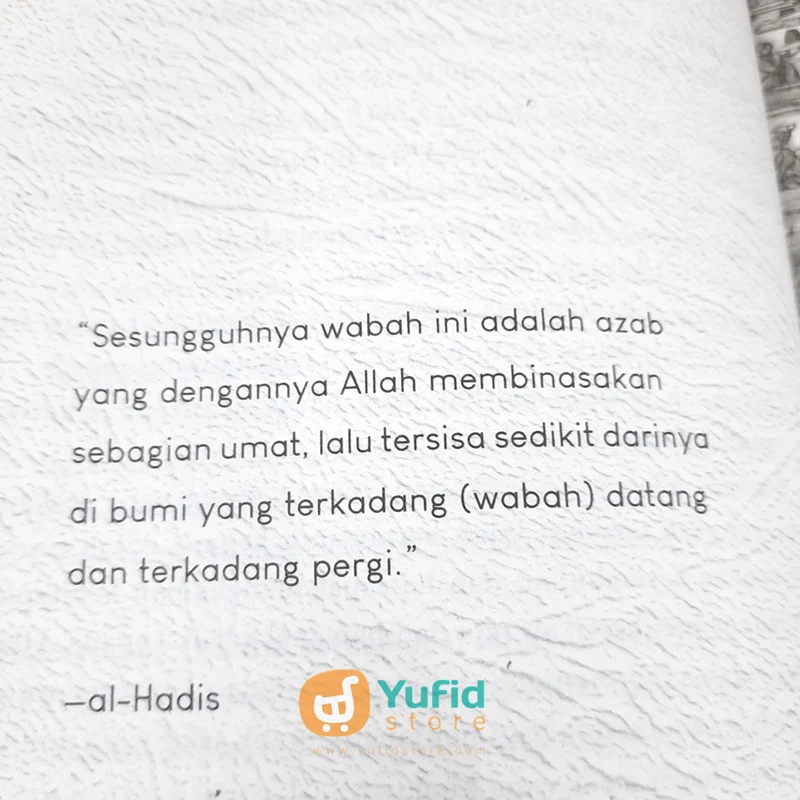 “Sesungguhnya wabah ini adalah azab
yang dengannya Allah membinasakan
sebagian umat, lalu tersisa sedikit darinya
di bumi yang terkadang (wabah) datang
dan terkadang pergi.”
—al-Hadis
Yufid
store
www.yufidstore.com